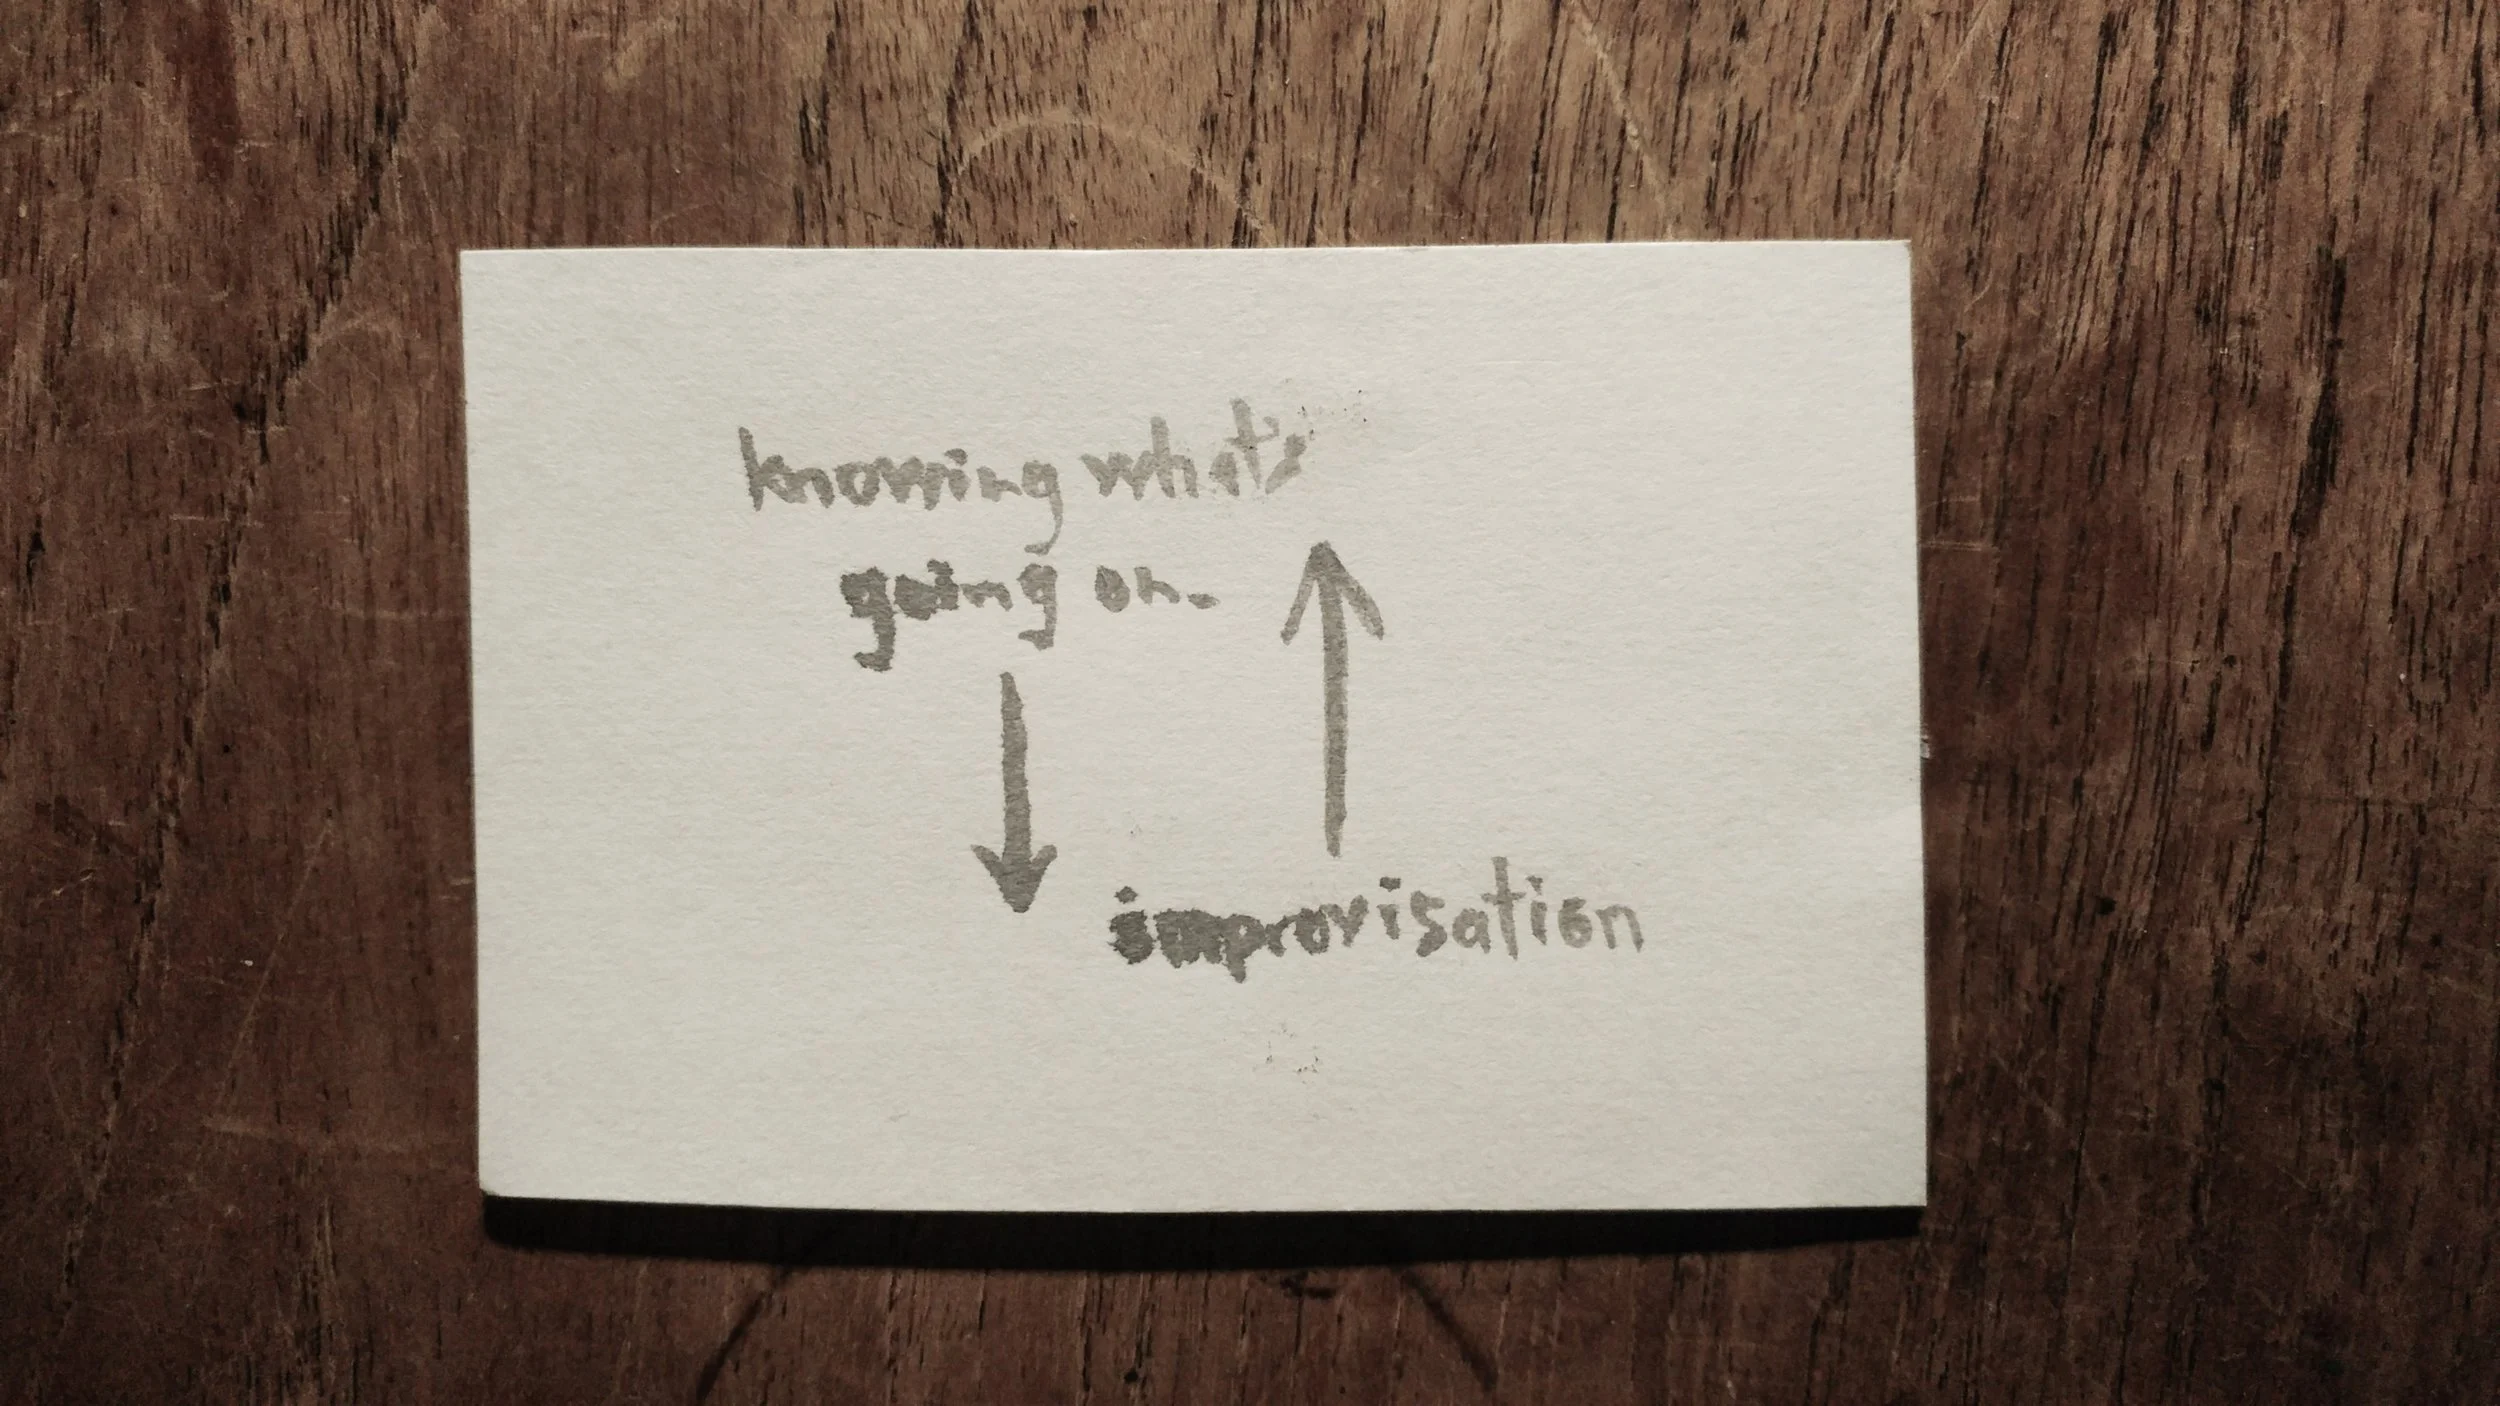 knowing what's
going on.
improvisation